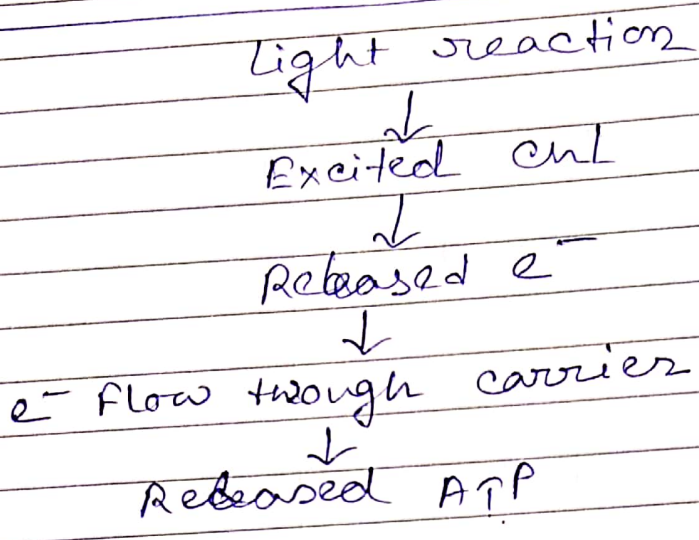 Light reaction
↓
Excited chl
↓
Released e⁻
↓
e⁻ flow through carrier
↓
Released ATP